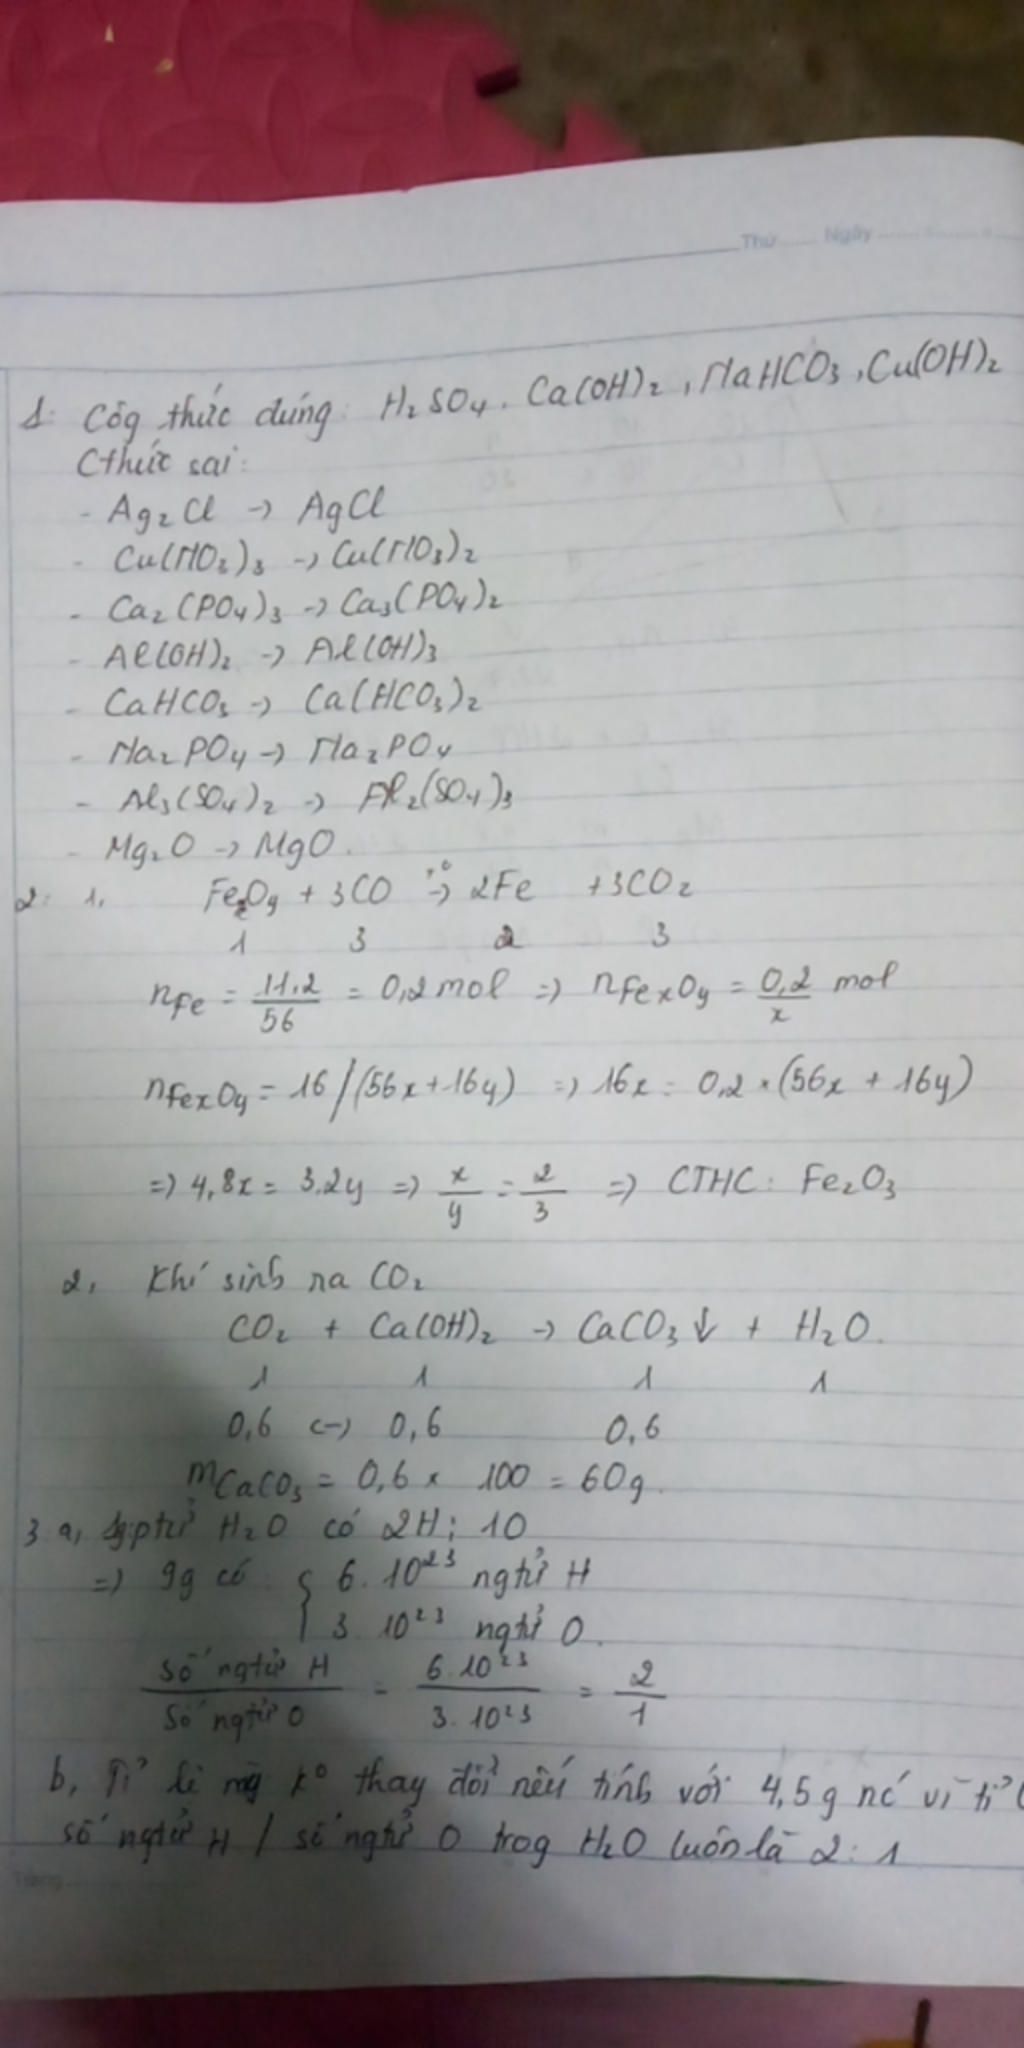 Thứ ...... Ngày
1: Côg thức đúng: H₂SO₄. Ca(OH)₂, NaHCO₃, Cu(OH)₂
Cthức sai:
- Ag₂Cl → AgCl
- Cu(NO₃)₃ → Cu(NO₃)₂
- Ca₂(PO₄)₃ → Ca₃(PO₄)₂
- Al(OH)₂ → Al(OH)₃
- CaHCO₃ → Ca(HCO₃)₂
- Na₂PO₄ → Na₃PO₄
- Al₃(SO₄)₂ → Al₂(SO₄)₃
- Mg₂O → MgO.
2: 1, FeₓOy + 3CO t°→ 2Fe + 3CO₂
1 3 2 3
nFe = 11.2/56 = 0,2 mol => nFexOy = 0,2/x mol
nFexOy = 16/(56x+16y) => 16x = 0,2 × (56x + 16y)
=> 4,8x = 3.2y => x/y = 2/3 => CTHC: Fe₂O₃
2, Khí sinh ra CO₂
CO₂ + Ca(OH)₂ → CaCO₃↓ + H₂O.
1 1 1 1
0,6 <-> 0,6 0,6
mCaCO₃ = 0,6 × 100 = 60g.
3. a, ptử H₂O có 2H; 1O
=> 9g có { 6.10²³ ngtử H
3.10²³ ngtử O.
Số ngtử H / Số ngtử O = 6.10²³ / 3.10²³ = 2/1
b, Tỉ lệ k° thay đổi nếu tính với 4,5g nc vì tỉ
số ngtử H / số ngtử O trog H₂O luôn là 2:1
Trang